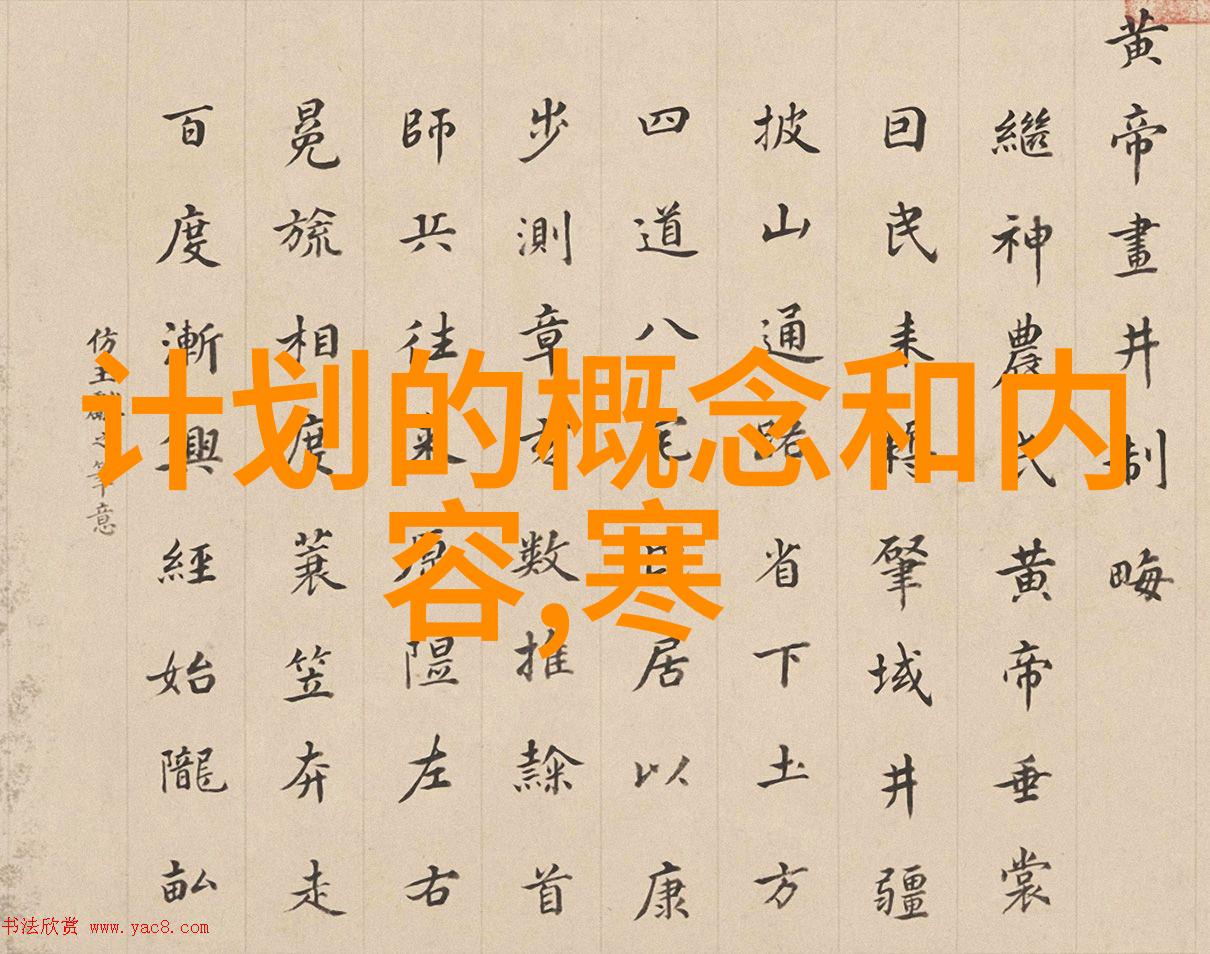 计划的概念和内
容,寒
黄帝畫井制畮
繼神農氏黄帝垂裳
囙民耒耨肇域井疆
披山通路省下土方
四道八宅居以康
步測章亥数推隸首
師兵往來原隰左右
冕旒相度蓑笠奔走
百度漸興經始隴畝
仿王獻之筆意
书法欣赏 www.yac8.com